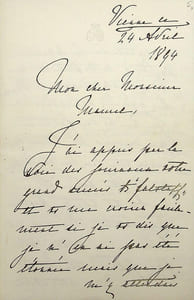 Vienne le
24 Avril
1894
Mon cher Monsieur
J'ai appris par la
voie des journaux votre
grand succès
et tu me croiras facile
ment si je te dis que
je n'en ai pas été
étonnée mais que je
m'y attendais